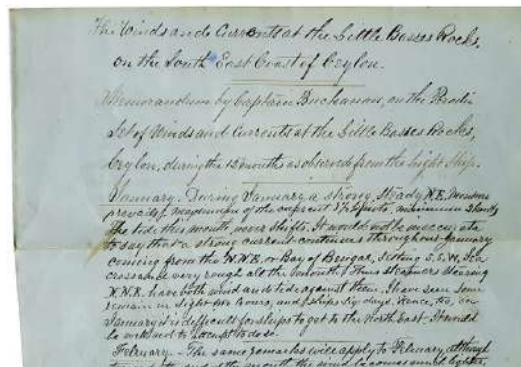 The Winds and Currents at the Little Basses Rocks,
on the South East Coast of Ceylon.
Memorandum by Captain Buchanan, on the
Set of Winds and Currents at the Little Basses Rocks,
Ceylon, during the 12 months as observed from the Light Ship.
January. During January a strong steady N.E. Monsoon
prevails, maximum of the current 3½ knots, minimum 2 knots
The tide this month never shifts. It would not be inaccurate
to say that a strong current continues throughout January
coming from the N.N.E. or Bay of Bengal, setting S.S.W. Sea
cross and very rough all the month. Thus steamers steering
N.N.E. have both wind and tide against them. I have seen some
remain in sight for hours, and ships six days. Hence, too, in
January it is difficult for ships to get to the North East. It would
be well not to attempt to do so.
February. The same remarks will apply to February, although
the month the wind becomes much lighter,